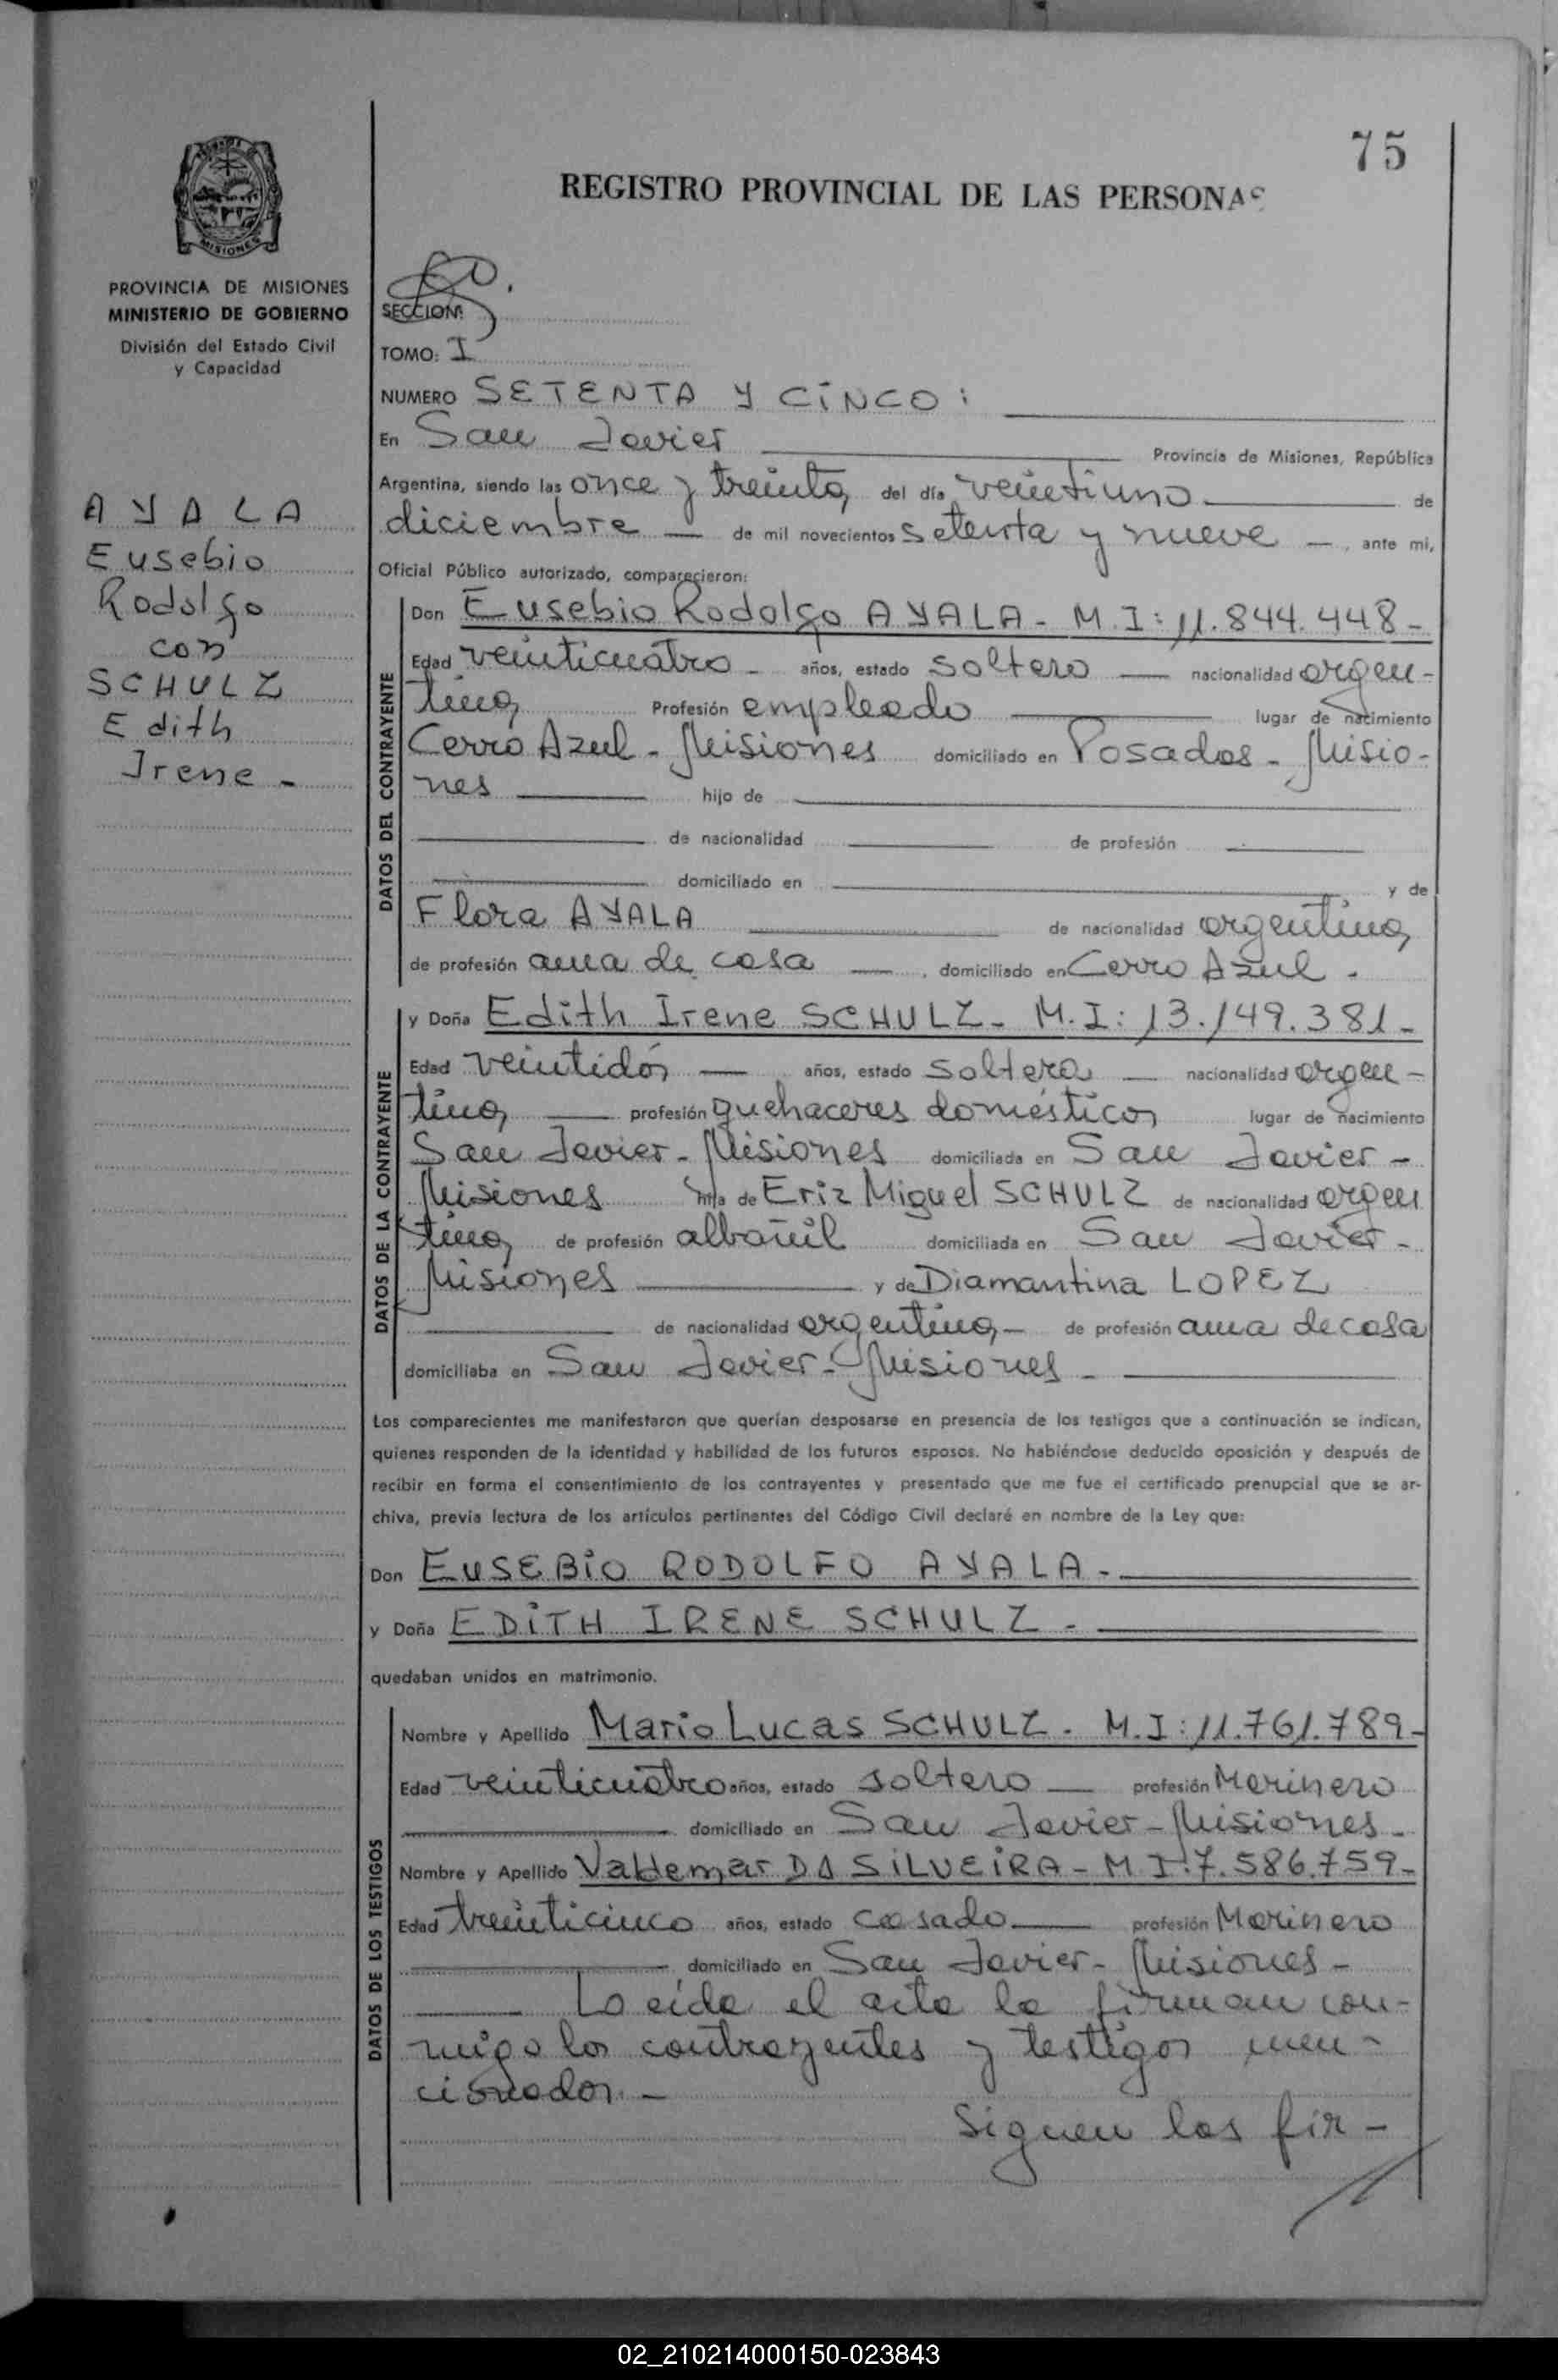 75
REGISTRO PROVINCIAL DE LAS PERSONAS
MISIONES
PROVINCIA DE MISIONES
MINISTERIO DE GOBIERNO
División del Estado Civil
y Capacidad
AYALA
Eusebio
Rodolfo
con
SCHULZ
Edith
Irene -
SECCION:
TOMO: I
NUMERO SETENTA Y CINCO:
En San Javier Provincia de Misiones, República
Argentina, siendo las once y treinta, del día veintiuno de
diciembre — de mil novecientos setenta y nueve —, ante mi,
Oficial Público autorizado, comparecieron:
DATOS DEL CONTRAYENTE
Don Eusebio Rodolfo AYALA - M.I: 11.844.448-
Edad veinticuatro - años, estado soltero — nacionalidad argen-
tina, Profesión empleado — lugar de nacimiento
Cerro Azul - Misiones domiciliado en Posadas - Misio-
nes — hijo de —
— de nacionalidad — de profesión —
— domiciliado en — y de
Flora AYALA — de nacionalidad argentina,
de profesión ama de casa —, domiciliado en Cerro Azul.
DATOS DE LA CONTRAYENTE
y Doña Edith Irene SCHULZ - M.I: 13.149.381-
Edad veintidós — años, estado soltera — nacionalidad argen-
tina, — profesión quehaceres domésticos lugar de nacimiento
San Javier - Misiones domiciliada en San Javier -
Misiones hija de Eriz Miguel SCHULZ de nacionalidad argen
tina, de profesión albañil domiciliada en San Javier -
Misiones — y de Diamantina LOPEZ
— de nacionalidad argentina, - de profesión ama de casa
domiciliaba en San Javier - Misiones - —
Los comparecientes me manifestaron que querían desposarse en presencia de los testigos que a continuación se indican,
quienes responden de la identidad y habilidad de los futuros esposos. No habiéndose deducido oposición y después de
recibir en forma el consentimiento de los contrayentes y presentado que me fue el certificado prenupcial que se ar-
chiva, previa lectura de los artículos pertinentes del Código Civil declaré en nombre de la Ley que:
Don EUSEBIO RODOLFO AYALA - —
y Doña EDITH IRENE SCHULZ - —
quedaban unidos en matrimonio.
DATOS DE LOS TESTIGOS
Nombre y Apellido Mario Lucas SCHULZ - M.I: 11.761.789-
Edad veinticuatro años, estado soltero — profesión Marinero
— domiciliado en San Javier - Misiones -
Nombre y Apellido Valdemar DA SILVEIRA - M.I: 7.586.759-
Edad treinticinco años, estado casado — profesión Marinero
— domiciliado en San Javier - Misiones -
— Leída el acta la firman con-
migo los contrayentes y testigos men-
cionados. -
Siguen las fir-
02_210214000150-023843